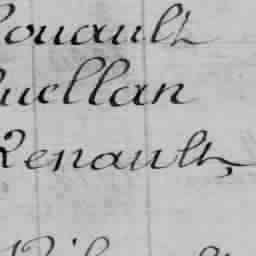 ouault
uellan
Renault,